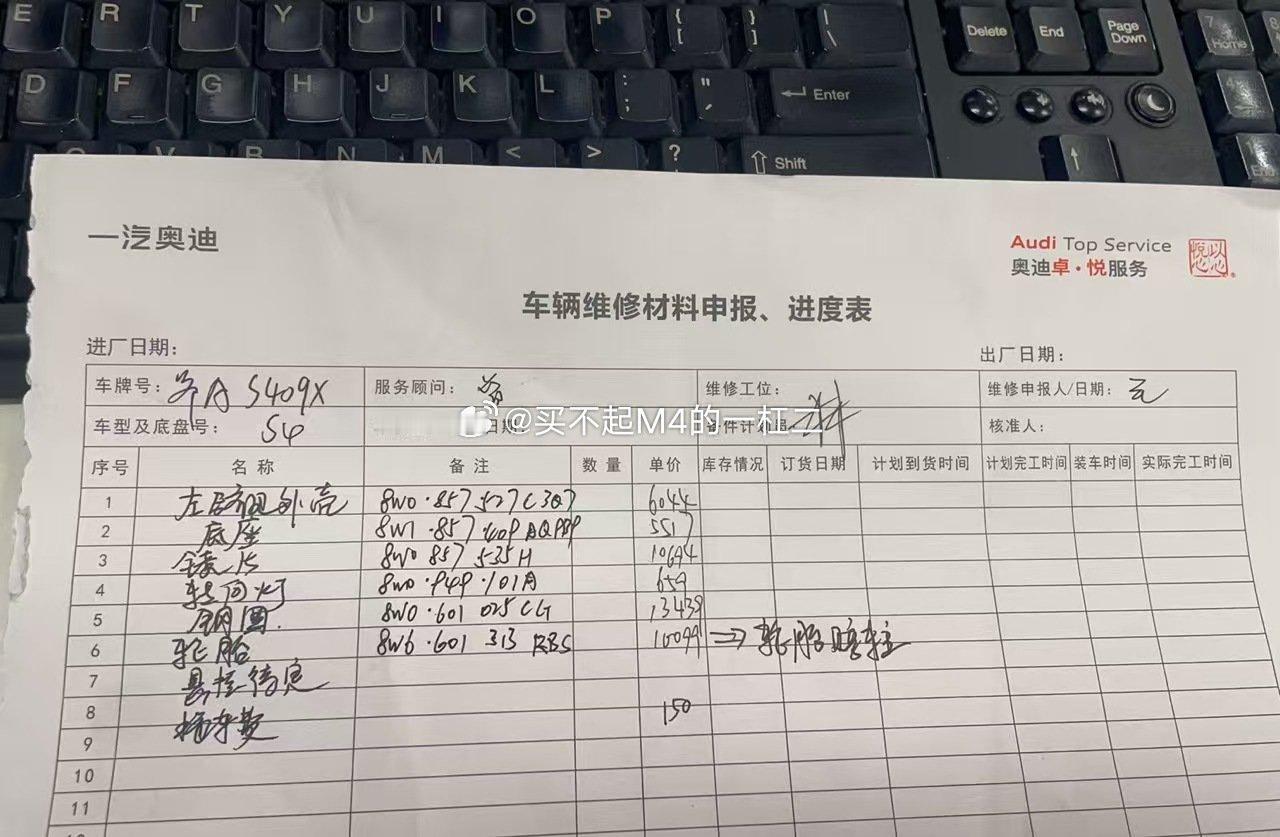 E R T Y U I O P { [ } ] | \ Delete End Page Down 7 Home 8
D F G H J K L : ; " ' Enter 4
C V B N M < > ? Shift
一汽奥迪
Audi Top Service
奥迪卓·悦服务
车辆维修材料申报、进度表
进厂日期：
出厂日期：
车牌号： S409X 服务顾问： 维修工位： 维修申报人/日期：
车型及底盘号： S4 日期： 备件计划员 核准人：
@买不起M4的一杠二
序号 名称 备注 数量 单价 库存情况 订货日期 计划到货时间 计划完工时间 装车时间 实际完工时间
1 外壳 8W0·857 527C 3Q7 6044
2 底座 8W1·857 409 5517
3 镜片 8W0 857 535H 10694
4 转向灯 8W0·949·101A 659
5 钢圈 8W0·601 025 CG 13439
6 轮胎 8W6·601 313 10099 ⇒ 轮胎
7 悬挂待定
8 拖车费 150
9
10
11